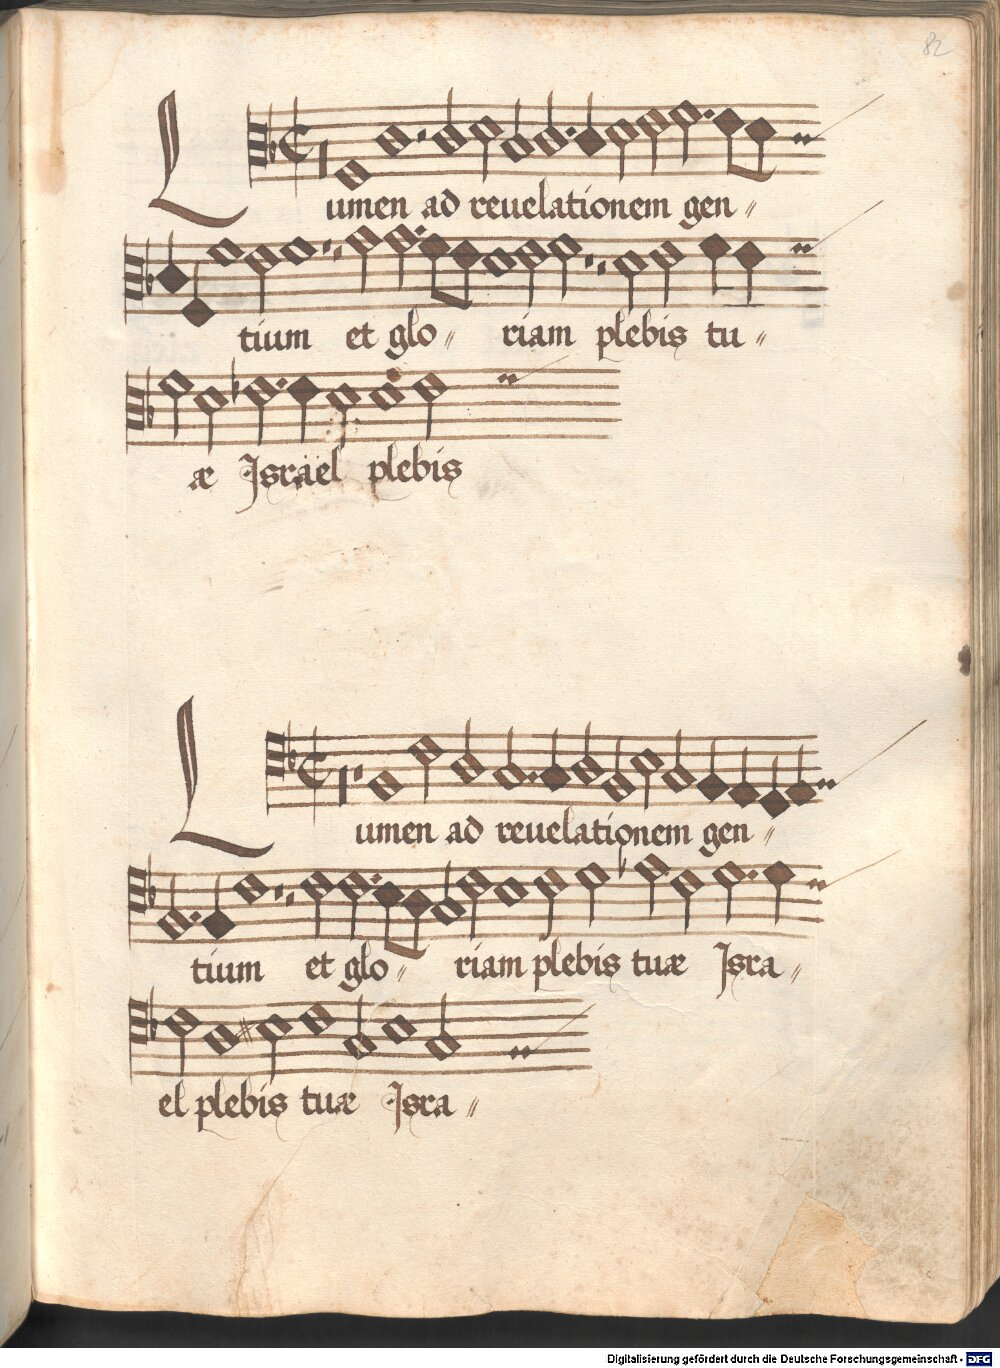 82
Lumen ad reuelationem gen〃
tium et glo〃 riam plebis tu〃
æ Israël plebis
Lumen ad reuelationem gen〃
tium et glo〃 riam plebis tuæ Isra〃
el plebis tuæ Isra〃
Digitalisierung gefördert durch die Deutsche Forschungsgemeinschaft - DFG